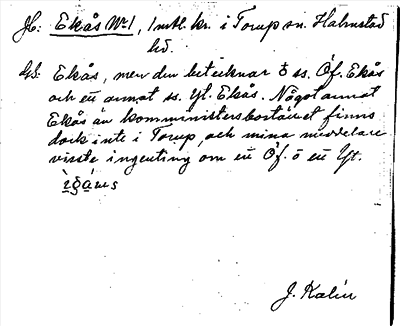 JB: Ekås No 1, 1 mtl. kr. i Torup sn. Halmstad
hd.
GS: Ekås, men den betecknar ss. Öf. Ekås
och en annat ss. Yt. Ekås. Något annat
Ekås än komministersbostället finns
dock inte i Torup, och mina meddelare
visste ingenting om en Öf. o en Yt.
J. Kalén